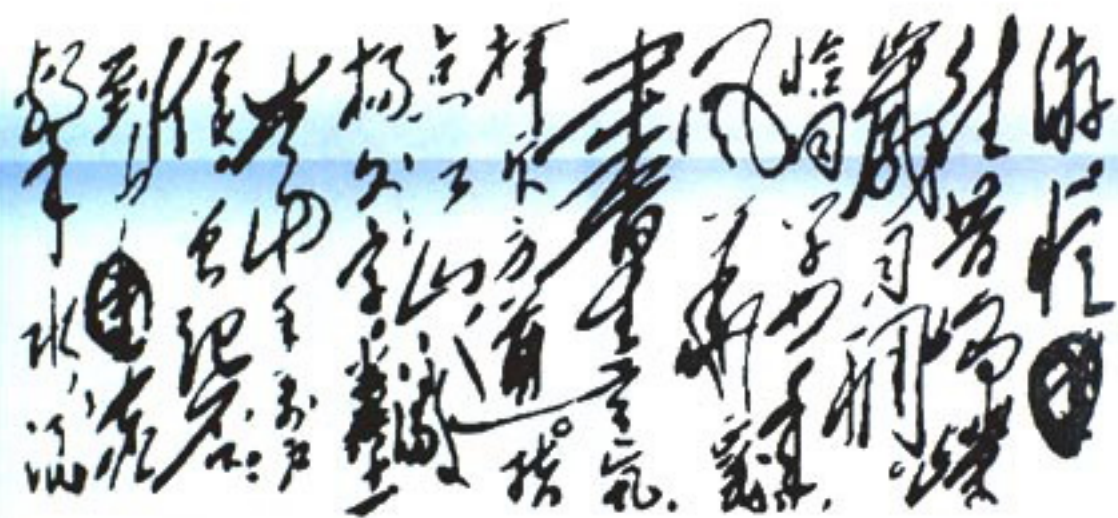 游。忆
往昔峥嵘
岁月稠。
恰同学少年,
风华正茂
书生意气,
挥斥方遒。指
点江山,激
扬文字,粪土
当年万户
侯。曾记否
到中流
击水,浪